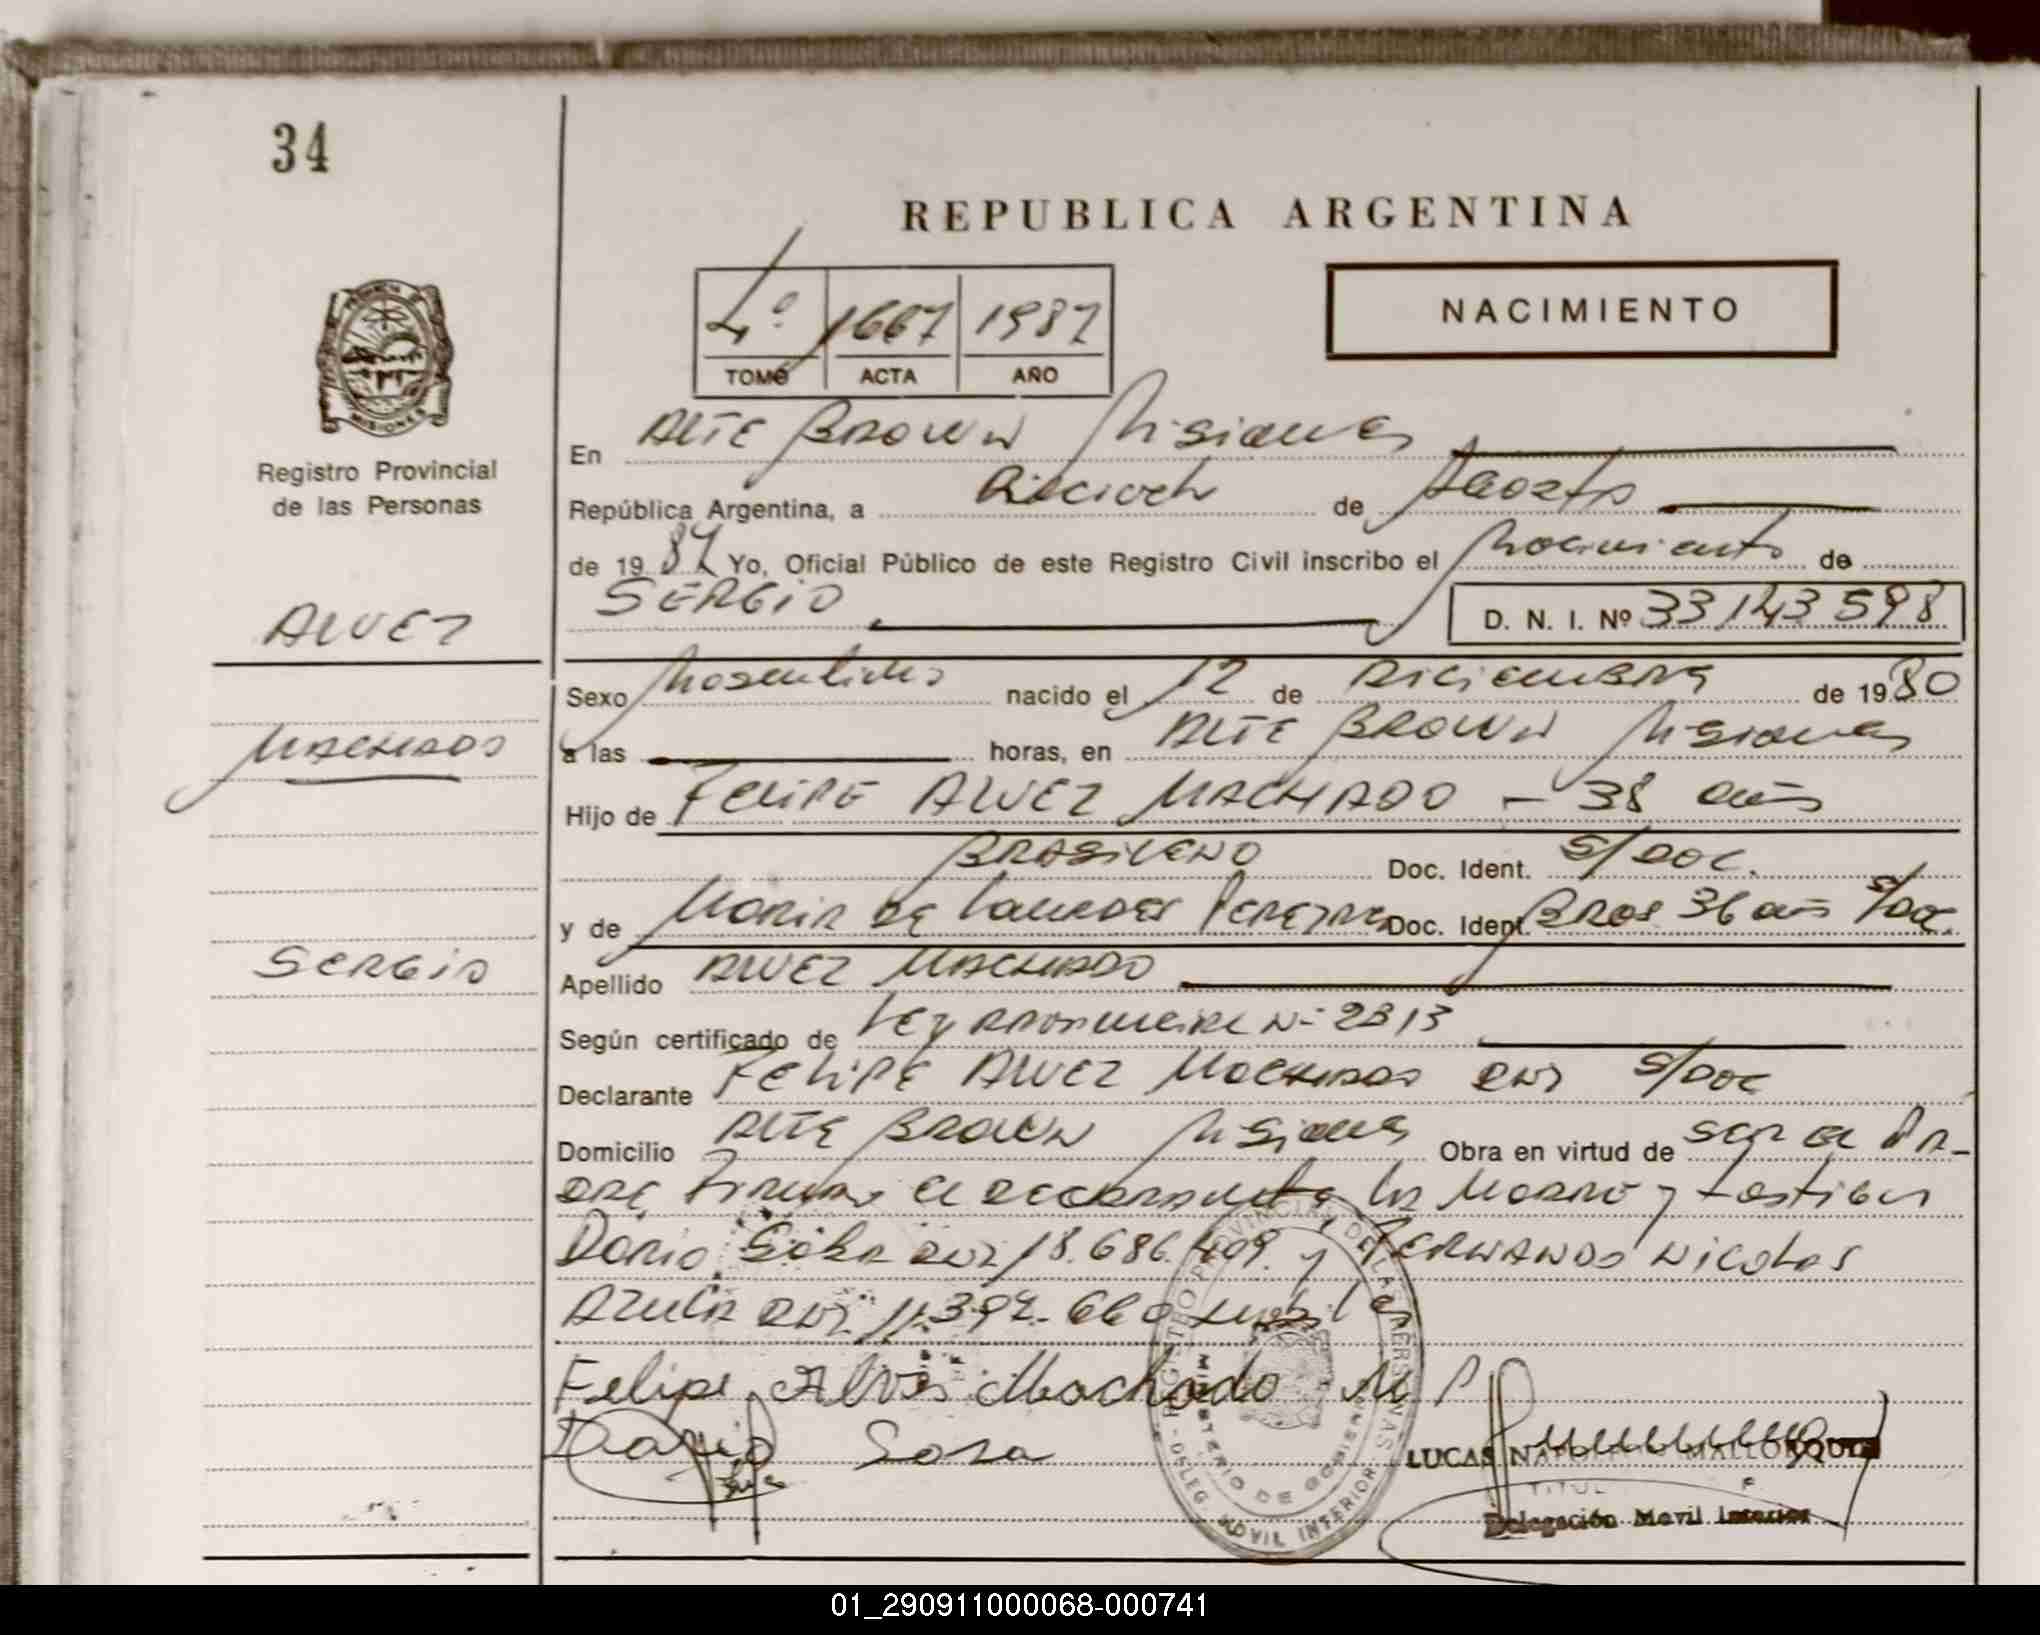 34
REPUBLICA ARGENTINA
NACIMIENTO
4º 1667 1987
TOMO ACTA AÑO
PROVINCIA DE MISIONES
Registro Provincial
de las Personas
En ALTE BROWN Misiones
República Argentina, a Dieciocho de Agosto
de 19 87 Yo, Oficial Público de este Registro Civil inscribo el Nacimiento de
SERGIO
D. N. I. Nº 33143598
ALVEZ
MACHADO
SERGIO
Sexo Masculino nacido el 12 de DICIEMBRE de 1980
a las horas, en ALTE BROWN Misiones
Hijo de FELIPE ALVEZ MACHADO - 38 años
BRASILENO Doc. Ident. S/DOC.
y de MARIA DE Lourdes Doc. Ident. BRAS 36 años S/Doc.
Apellido ALVEZ MACHADO
Según certificado de Ley Nº 2313
Declarante FELIPE ALVEZ MACHADO DNI S/DOC
Domicilio ALTE BROWN Misiones Obra en virtud de ser el PA-
DRE Firman el declarante, la Madre y testigos
Dario DNI 18.686.409 y FERNANDO NICOLAS
DNI 11.397.660
Felipe Alves Machado M P
Dario Sosa
REGISTRO PROVINCIAL DE LAS PERSONAS
MINISTERIO DE GOBIERNO
DELEG. MOVIL INTERIOR
LUCAS
Delegación Movil Interior
01_290911000068-000741